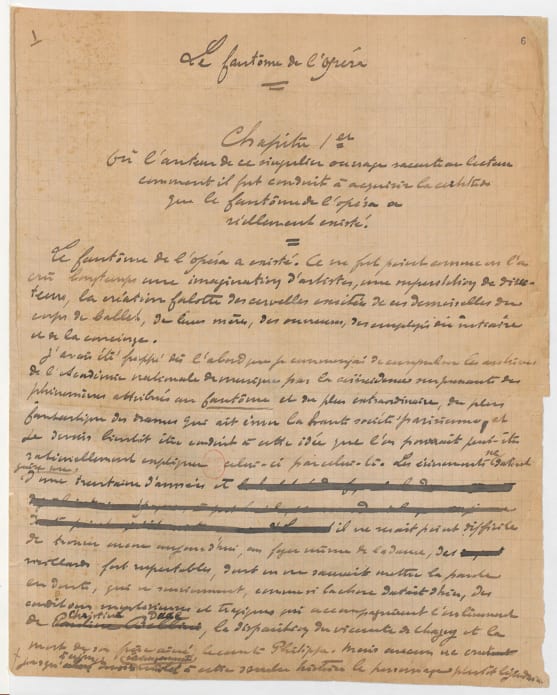 1
6
Le fantôme de l'opéra
Chapitre 1er
Où l'auteur de ce singulier ouvrage raconte au lecteur
comment il fut conduit à acquérir la certitude
que le fantôme de l'opéra a
réellement existé.
Le fantôme de l'opéra a existé. Ce ne fut point comme on l'a
cru longtemps une imagination d'artistes, une superstition de direc-
teurs, la création falotte des cervelles excitées de ces demoiselles du
corps de ballet, de leurs mères, des ouvreuses, des employés du vestiaire
et de la concierge.
J'avais été frappé dès l'abord que je commençai de compulser les archives
de l'Académie nationale de musique par la coïncidence surprenante des
phénomènes attribués au fantôme et du plus extraordinaire, du plus
fantastique des drames qui ait ému la haute société parisienne, et
je devais bientôt être conduit à cette idée que l'on pourrait peut-être
rationnellement expliquer celui-ci par celui-là. Les évènements ne datent
guère que
d'une trentaine d'années et
il ne serait point difficile
de trouver encore aujourd'hui, au foyer même de la danse, des
vieillards fort respectables, dont on ne saurait mettre la parole
en doute, qui se souviennent, comme si la chose datait d'hier, des
conditions mystérieuses et tragiques qui accompagnèrent l'enlèvement
Christine Daaé
de, la disparition du vicomte de Chagny et la
mort de son frère aîné le comte Philippe. Mais aucun ne croyait
jusqu'à cette sombre histoire le personnage plutôt légendaire